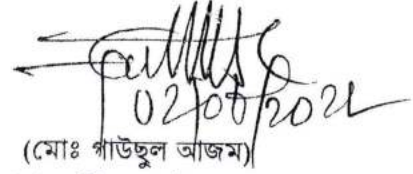 02/08/2022
(মোঃ গাউছুল আজম)